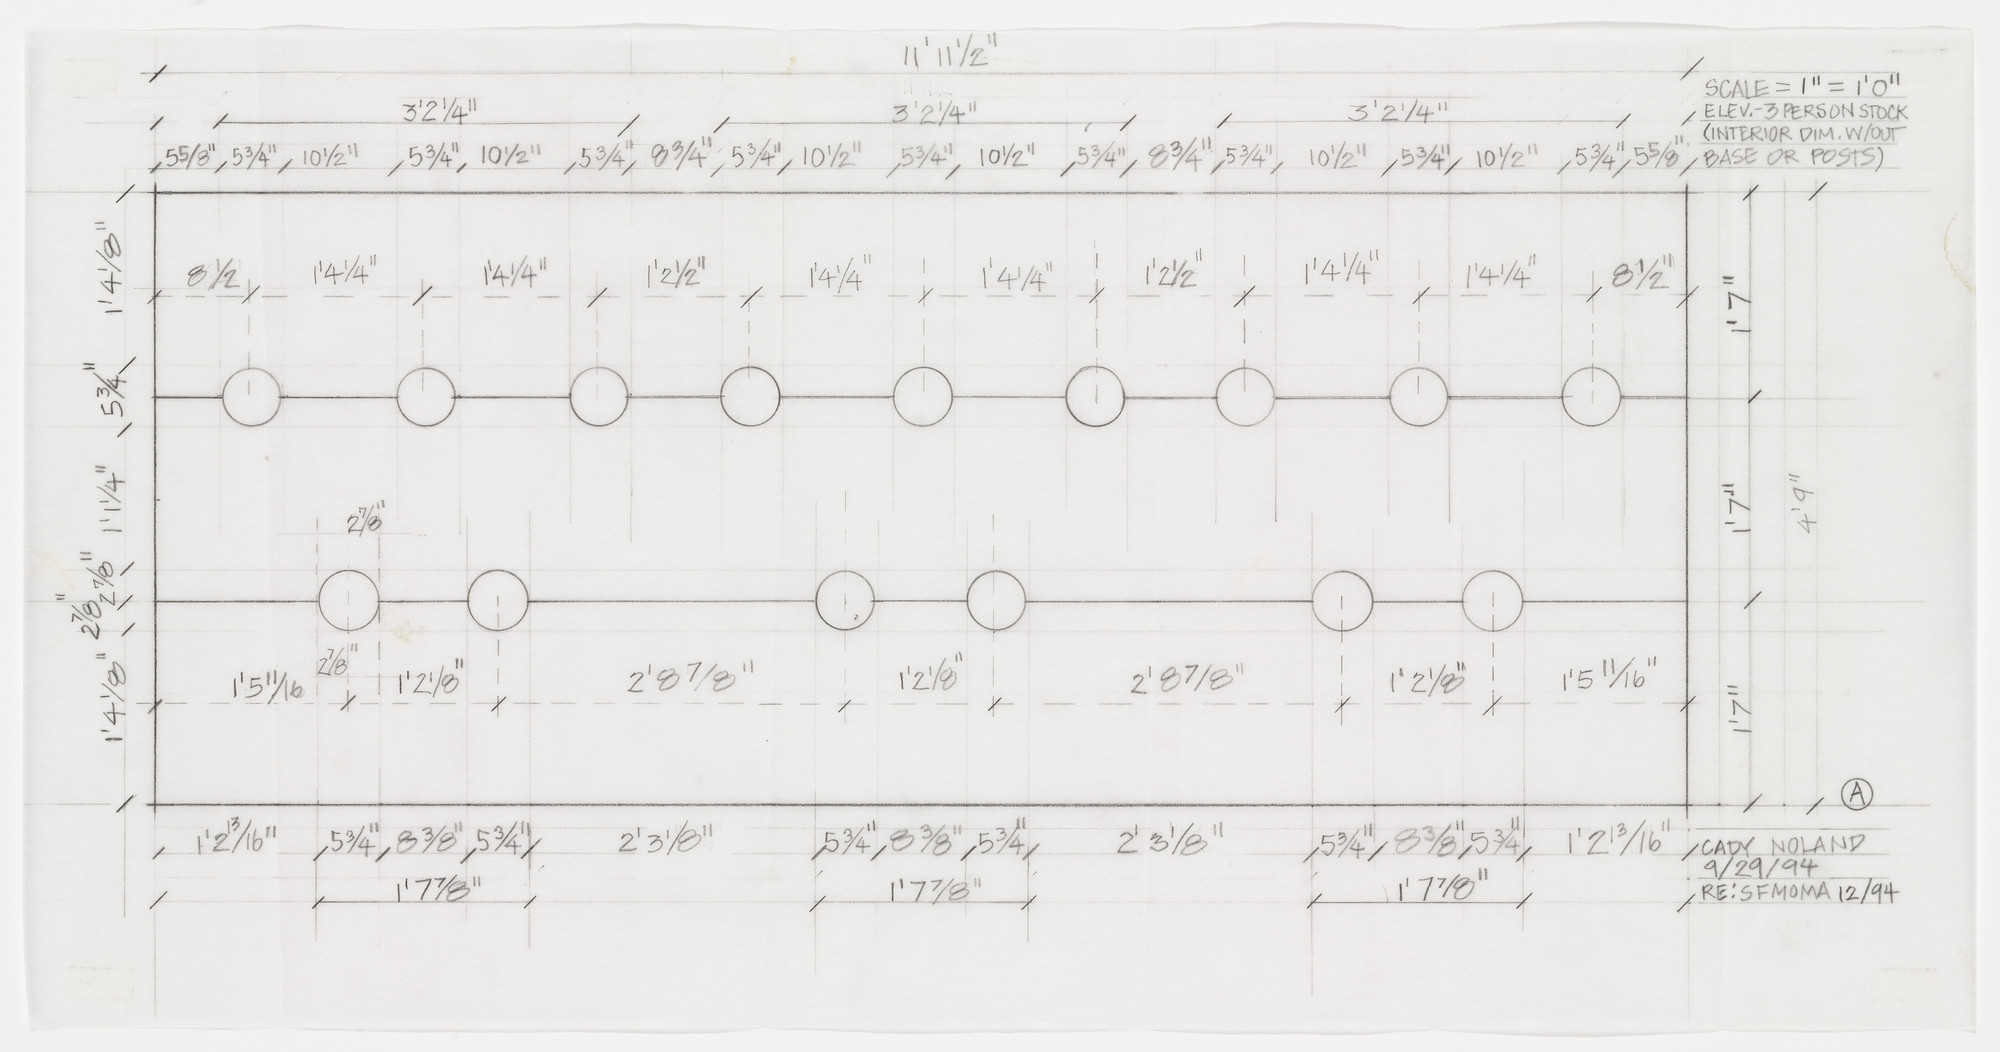 11' 11 1/2"
3' 2 1/4" 3' 2 1/4" 3' 2 1/4"
5 5/8" 5 3/4" 10 1/2" 5 3/4" 10 1/2" 5 3/4" 8 3/4" 5 3/4" 10 1/2" 5 3/4" 10 1/2" 5 3/4" 8 3/4" 5 3/4" 10 1/2" 5 3/4" 10 1/2" 5 3/4" 5 5/8"
SCALE = 1" = 1'0"
ELEV.-3 PERSON STOCK
(INTERIOR DIM. W/OUT
BASE OR POSTS)
8 1/2 1'4 1/4" 1'4 1/4" 1'2 1/2" 1'4 1/4" 1'4 1/4" 1'2 1/2" 1'4 1/4" 1'4 1/4" 8 1/2"
1'4 1/8"
5 3/4"
1'1 1/4"
2 7/8"
2 7/8"
1'4 1/8"
2 7/8"
2 7/8"
1'5 11/16 1'2 1/8" 2'8 7/8" 1'2 1/8" 2'8 7/8" 1'2 1/8" 1'5 11/16"
1'7"
1'7"
1'7"
4'9"
A
1'2 13/16" 5 3/4" 8 3/8" 5 3/4" 2'3 1/8" 5 3/4" 8 3/8" 5 3/4" 2'3 1/8" 5 3/4" 8 3/8" 5 3/4" 1'2 13/16"
1'7 7/8" 1'7 7/8" 1'7 7/8"
CADY NOLAND
9/29/94
RE: SFMOMA 12/94